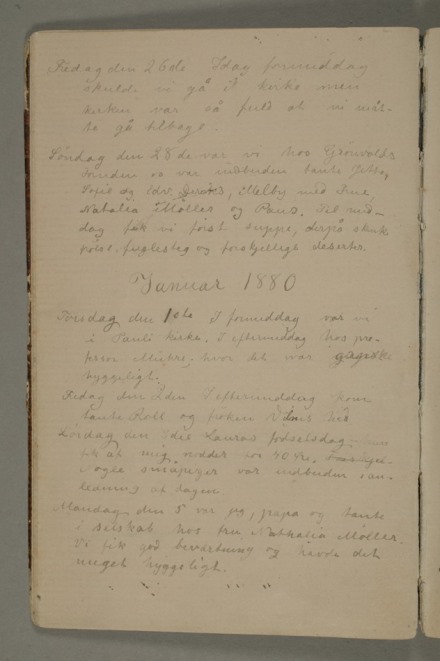 Fredag den 26de Idag formiddag
skulde vi gå i kirke men
kirken var så fuld at vi måt-
te gå tilbage.
Søndag den 28de var vi hos Grønvolds
foruden os var indbuden tante Jebbe,
Sofie og Melby med Fine,
Nathalia Møller og Paus. Til mid-
dag fik vi først suppe, derpå
fuglesteg og forskjellige deserter
Januar 1880
Torsdag den 1ste I formiddag var vi
i Pauli kirke. I eftermiddag hos pro-
fessor hvor det var
hyggeligt.
Fredag den 2den I eftermiddag kom
tante Roll og frøken hid
Lørdag den 3die Lauras fødselsdag - hun
fik af mig nødder for 40 øre.
Nogle småpiger var indbuden i an-
ledning af dagen.
Mandag den 5 var jeg, papa og tante
i selskab hos fru Nathalia Møller.
Vi fik god bevertning og havde det
meget hyggeligt.